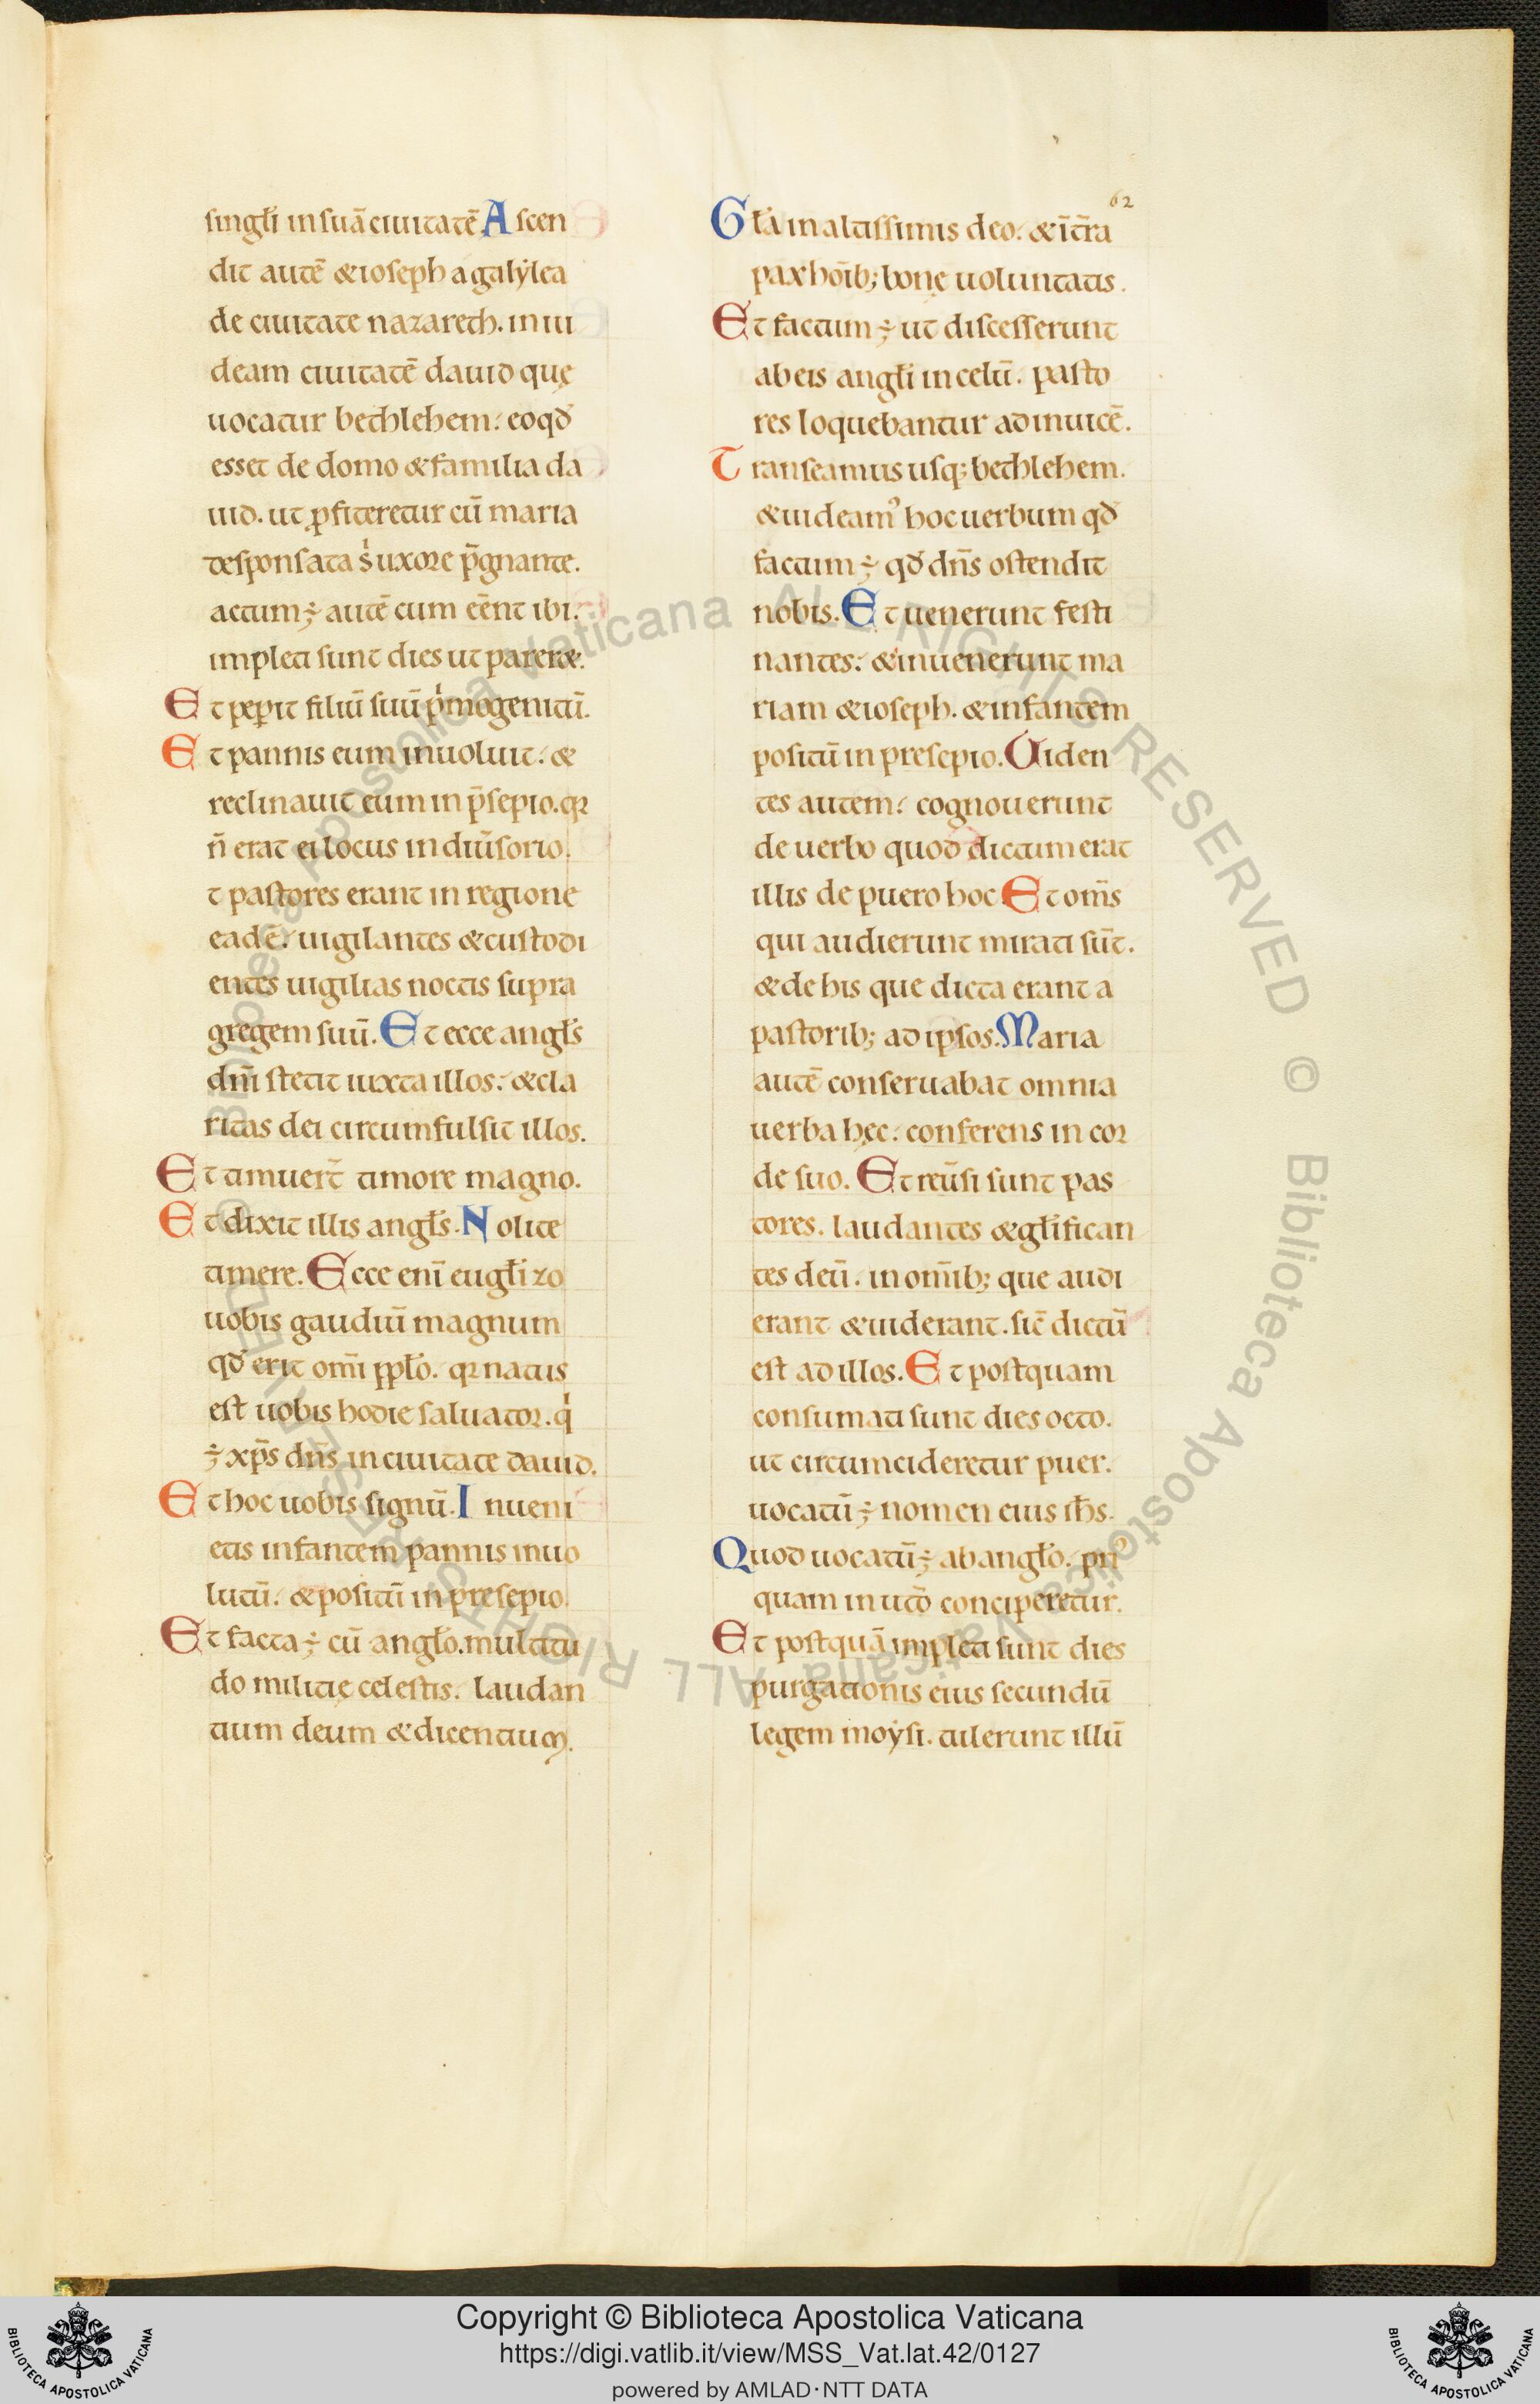 singłi in suā ciuitatē Ascen
dit autē & ioseph a galẏlea
de ciuitate nazareth. in iu
deam ciuitatē dauid quę
uocatur bethlehem: eo qđ
esset de domo & familia da
uid. ut ꝓfiteretur cū maria
desponsata s' uxore p̄gnante.
actum ÷ autē cum eēnt ibi.
impleti sunt dies ut parer&.
Et peꝑit filiū suū pͥmogenitū.
Et pannis eum inuoluit: &
reclinauit eum in p̄sepio. qꝛ
n̄ erat ei locus in diu̾sorio.
t pastores erant in regione
eadē: uigilantes & custodi
entes uigilias noctis supra
gregem suū. Et ecce angłs
dn̄i stetit iuxta illos: & cla
ritas dei circumfulsit illos.
Et timuert̄ timore magno.
Et dixit illis angłs. Nolite
timere. Ecce eni̅ eugłizo
uobis gaudiū magnum
qđ erit om̄i ppło. qꝛ natus
est uobis hodie saluator. qͥ
÷ xp̄s dn̄s in ciuitate dauid.
Et hoc uobis signū. Inueni
etis infantem pannis inuo
lutū: & positū in presepio.
Et facta ÷ cū angło. multitu
do militię celestis. laudan
tium deum & dicentiuꝫ.
62
Głia in altissimis deo. & i̅ t̄ra
pax hoi̅bꝫ bonę uoluntatis.
Et factum ÷ ut discesserunt
ab eis angłi in celū. pasto
res loquebantur ad inuicē.
Transeamus usqꝫ bethlehem.
& uideamꝰ hoc uerbum qđ
factum ÷ qđ dn̄s ostendit
nobis. Et uenerunt festi
nantes: & inuenerunt ma
riam & ioseph. & infantem
positū in presepio. Uiden
tes autem: cognouerunt
de uerbo quod dictum erat
illis de puero hoc Et om̄s
qui audierunt mirati sūt.
& de his que dicta erant a
pastoribꝫ ad ipsos. Maria
autē conseruabat omnia
uerba hęc: conferens in cor
de suo. Et reu̾si sunt pas
tores. laudantes & głifican
tes deū. in om̄ibꝫ que audi
erant & uiderant. sic̄ dictū
est ad illos. Et postquam
consumati sunt dies octo.
ut circumcideretur puer.
uocatū ÷ nomen eius iħs.
Quod uocatū ÷ ab angło. priꝰ
quam in ut̾o conciperetur.
Et postquā impleti sunt dies
purgationis eius secundū
legem moẏsi. tulerunt illū
Copyright © Biblioteca Apostolica Vaticana
https://digi.vatlib.it/view/MSS_Vat.lat.42/0127
powered by AMLAD·NTT DATA
BIBLIOTECA APOSTOLICA VATICANA
BIBLIOTECA APOSTOLICA VATICANA
Biblioteca Apostolica Vaticana ALL RIGHTS RESERVED © Biblioteca Apostolica Vaticana ALL RIGHTS RESERVED ©